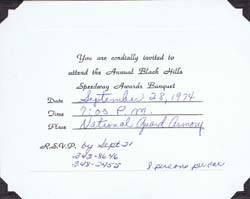 You are cordially invited to
attend the Annual Black Hills
Speedway Awards Banquet
Date September 28, 1974
Time 7:00 P.M.
Place National Guard Armory
R.S.V.P. by Sept 21
343-8646
348-2455 8 persons per